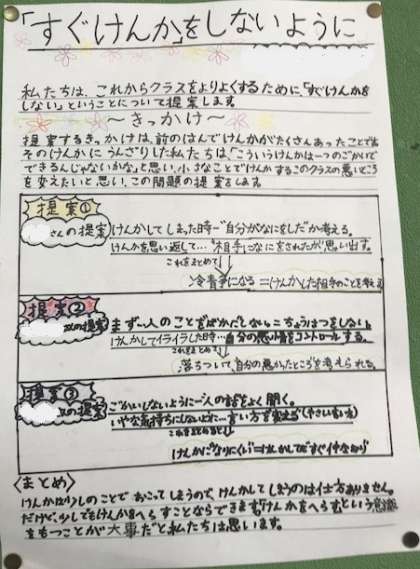 「すぐけんか」をしないように
私たちは、これからクラスをよりよくするために、「すぐけんかを
しない」ということについて提案します。
〜きっかけ〜
提案するきっかけは、前のはんでけんかがたくさんあったことです。
そのけんかにうんざりした私たちは「こういうけんかは一つのごかいで
できるんじゃないかな」と思い、小さなことでけんかするこのクラスの悪いところ
を変えたいと思い、この問題の提案をします。
提案①
さんの提案
けんかしてしまった時…自分がなにをしたか考える。
けんかを思い返して…相手になにをされたか思い出す。
これをまとめて
冷静になる=けんかした相手のことを考える
提案②
の提案
まず…人のことをばかにしない。こちょうはつをしない。
けんかしてイライラした時…自分の感情をコントロールする。
これをまとめて
落ちついて、自分の悪かったところを考えられる。
提案③
の提案
ごかいしないように…人の話をよく聞く。
いやな気持ちにしないように…言い方を変える(やさしい言い方)
これをまとめると
けんかになりにくい=けんかしてもすぐ仲なおり
〈まとめ〉
けんかは少しのことでおこってしまうので、けんかしてしまうのは仕方ありません。
だけど、少しでもけんかをへらすことならできます。「けんかをへらす」という意識
をもつことが大事だと私たちは思います。